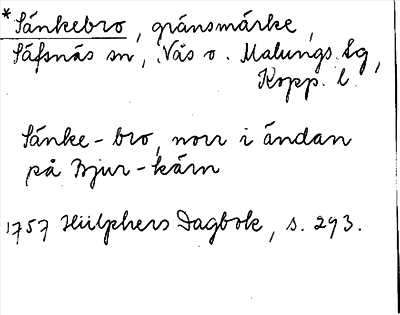 *Sänkebro, gränsmärke,
Säfsnäs sn, Nås o. Malungs dg,
Kopp. l.
Sänke-bro, norr i ändan
på Bjur-kärn
1757 Hülphers Dagbok, s. 293.